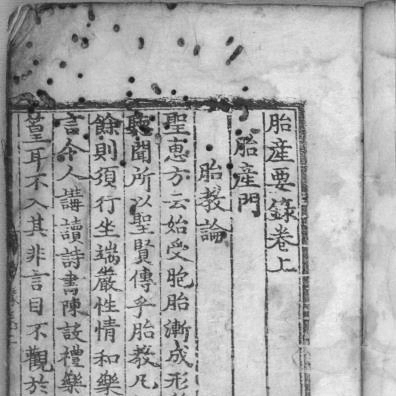 胎產要錄卷上
胎產門
胎教論
聖惠方云始受胞胎漸成形
聽聞所以聖賢傳乎胎教凡
餘則須行坐端嚴性情和樂
言令人講讀詩書陳說禮樂
耳不入其非言目不觀於